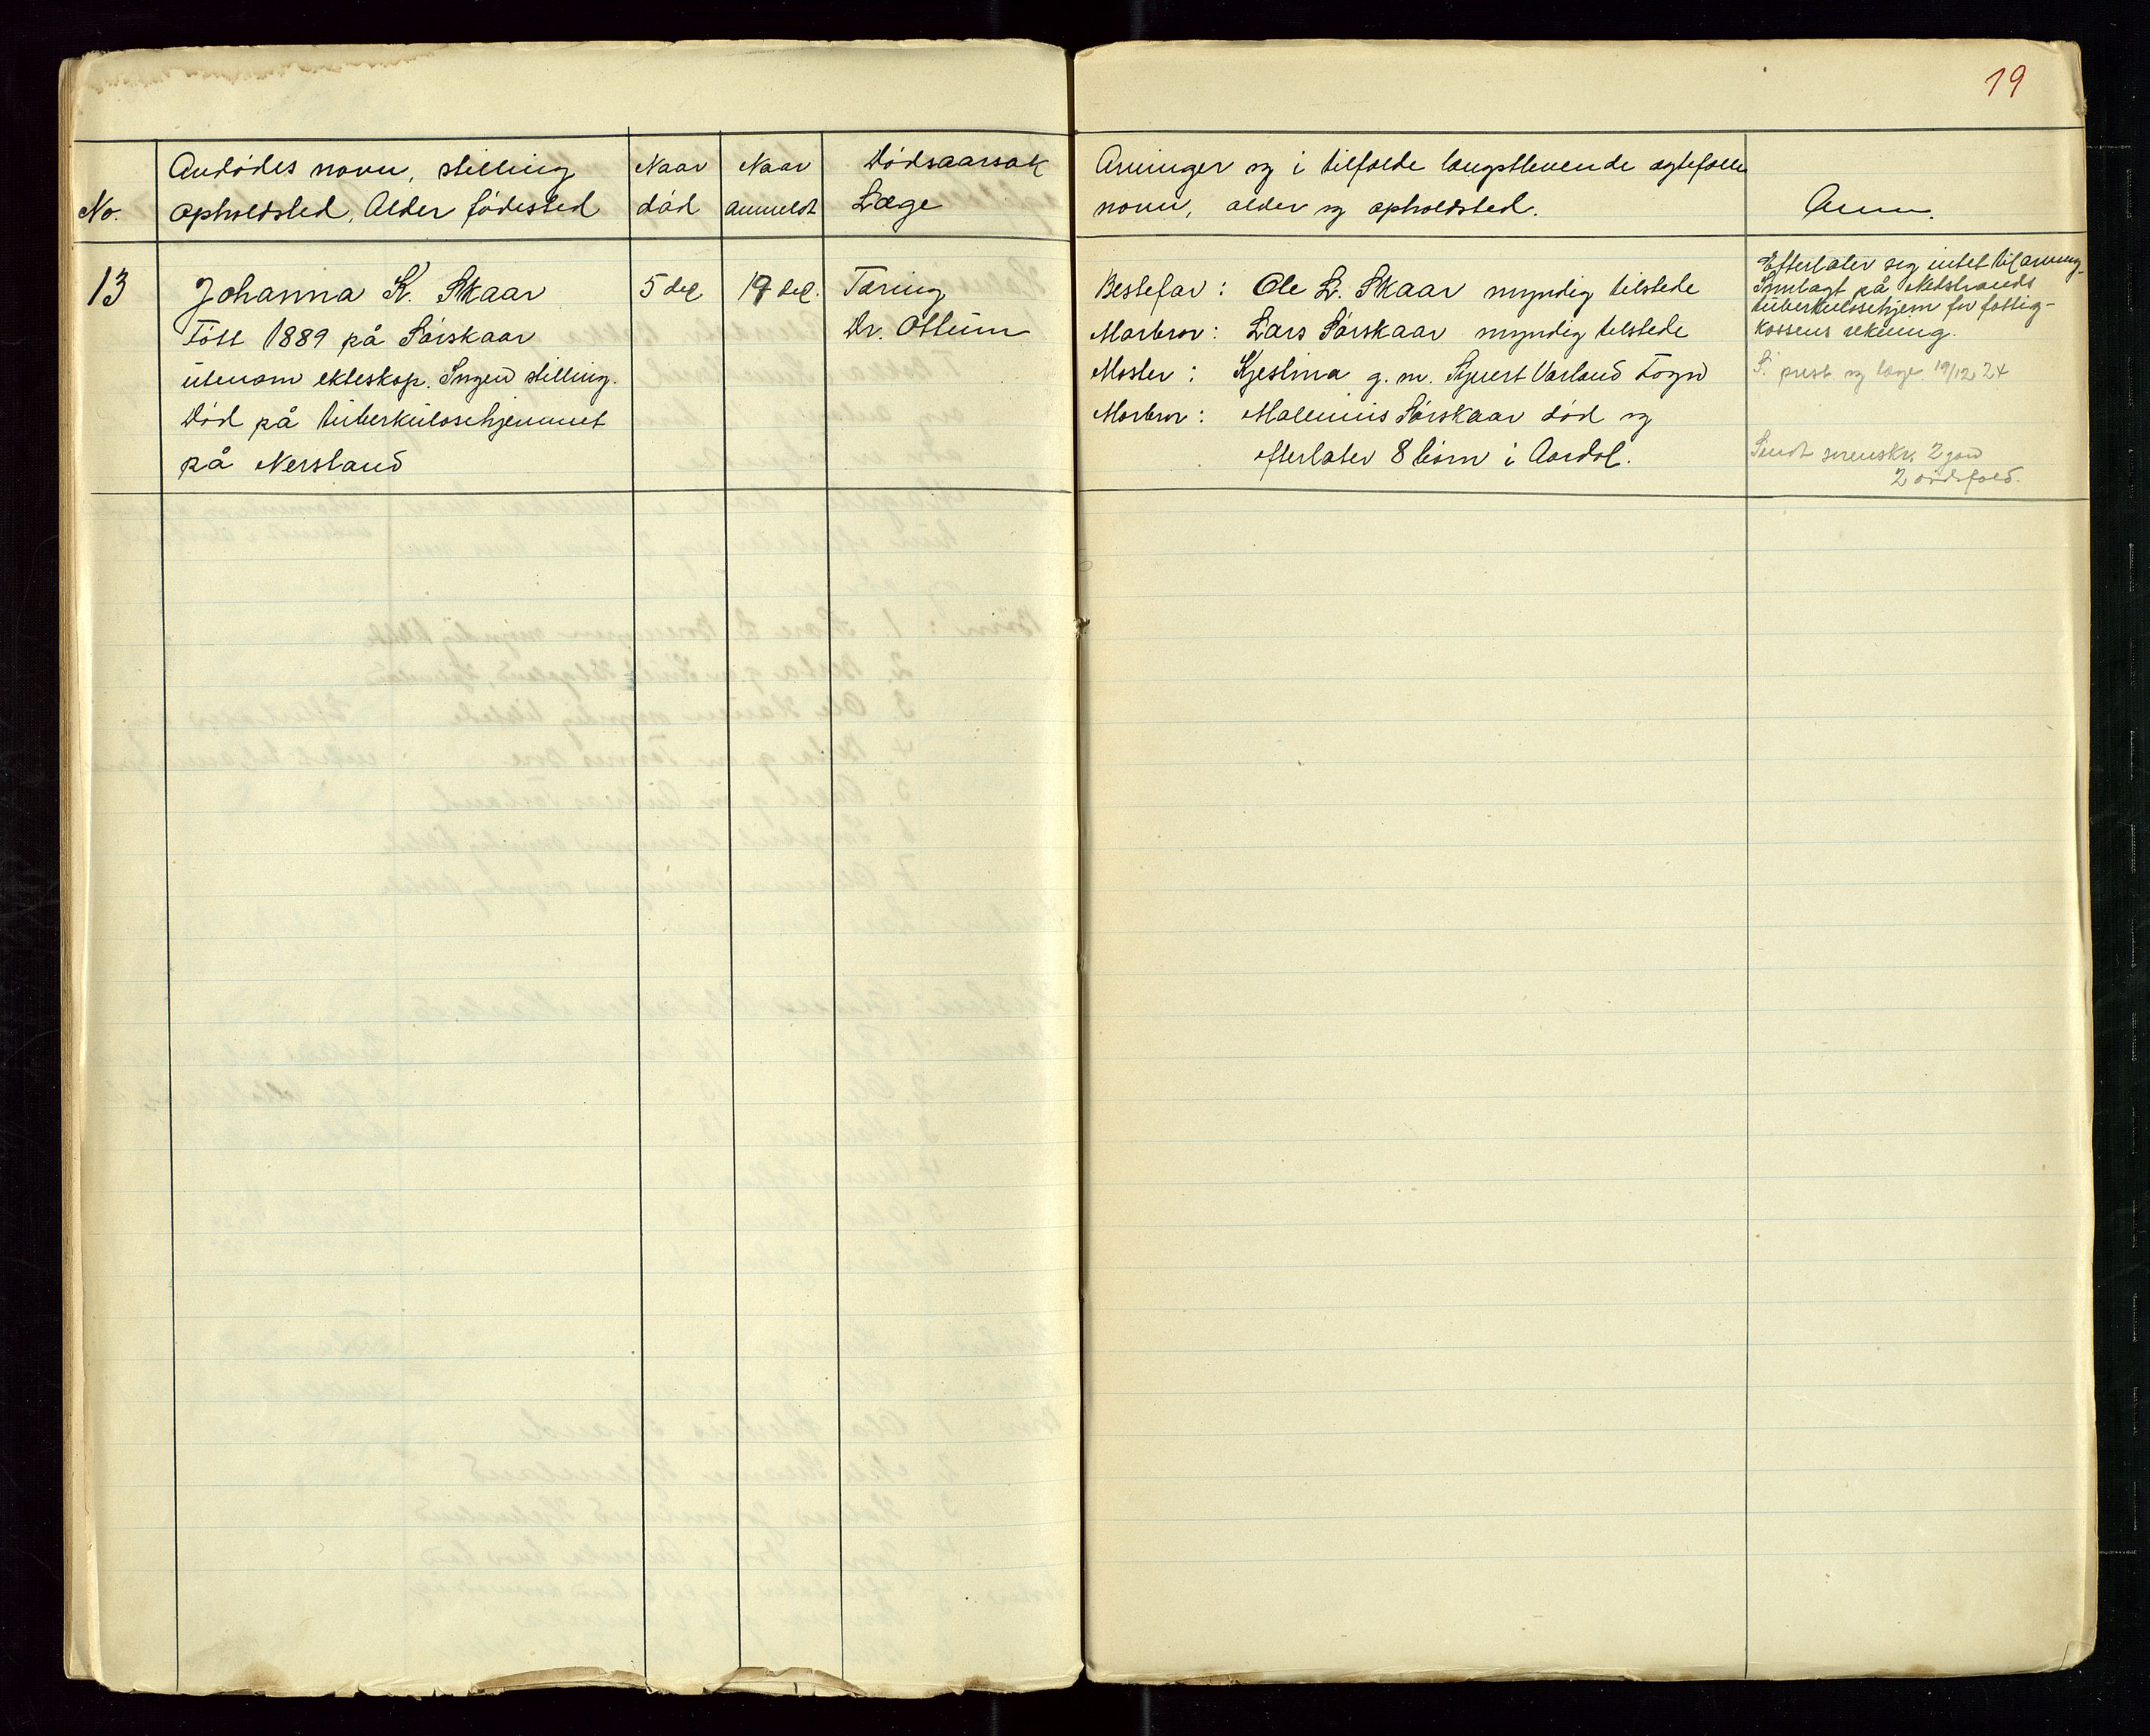 19
No.
Avdødes navn, stilling
opholdsted, Alder fødested
Naar
død
Naar
anmeldt
Dødsaarsak
Læge
Arvinger og i tilfælde længstlevende ægtefælle
navn, alder og opholdsted.
Anm.
13
Johanna K. Skaar
Født 1889 på Sørskaar
utenom ekteskap. Ingen stilling.
Død på tuberkulosehjemmet
på Nerstand
5 des
19 des.
Tæring
Dr. Ottum
Bestefar: Ole L. Skaar myndig tilstede
Morbror: Lars Sørskaar myndig tilstede
Moster: Kjestina g. m. Sjuert Varland Fogn
Morbror: Malenius Sørskaar død og
efterlater 8 born i Aardal.
Efterlater seg intet til arving-
Innlagt på Nedstrands
tuberkulosehjem for fattig-
kassens rekning.
S. prest og læge 19/12 24
Sendt sorenskr. 2 jan